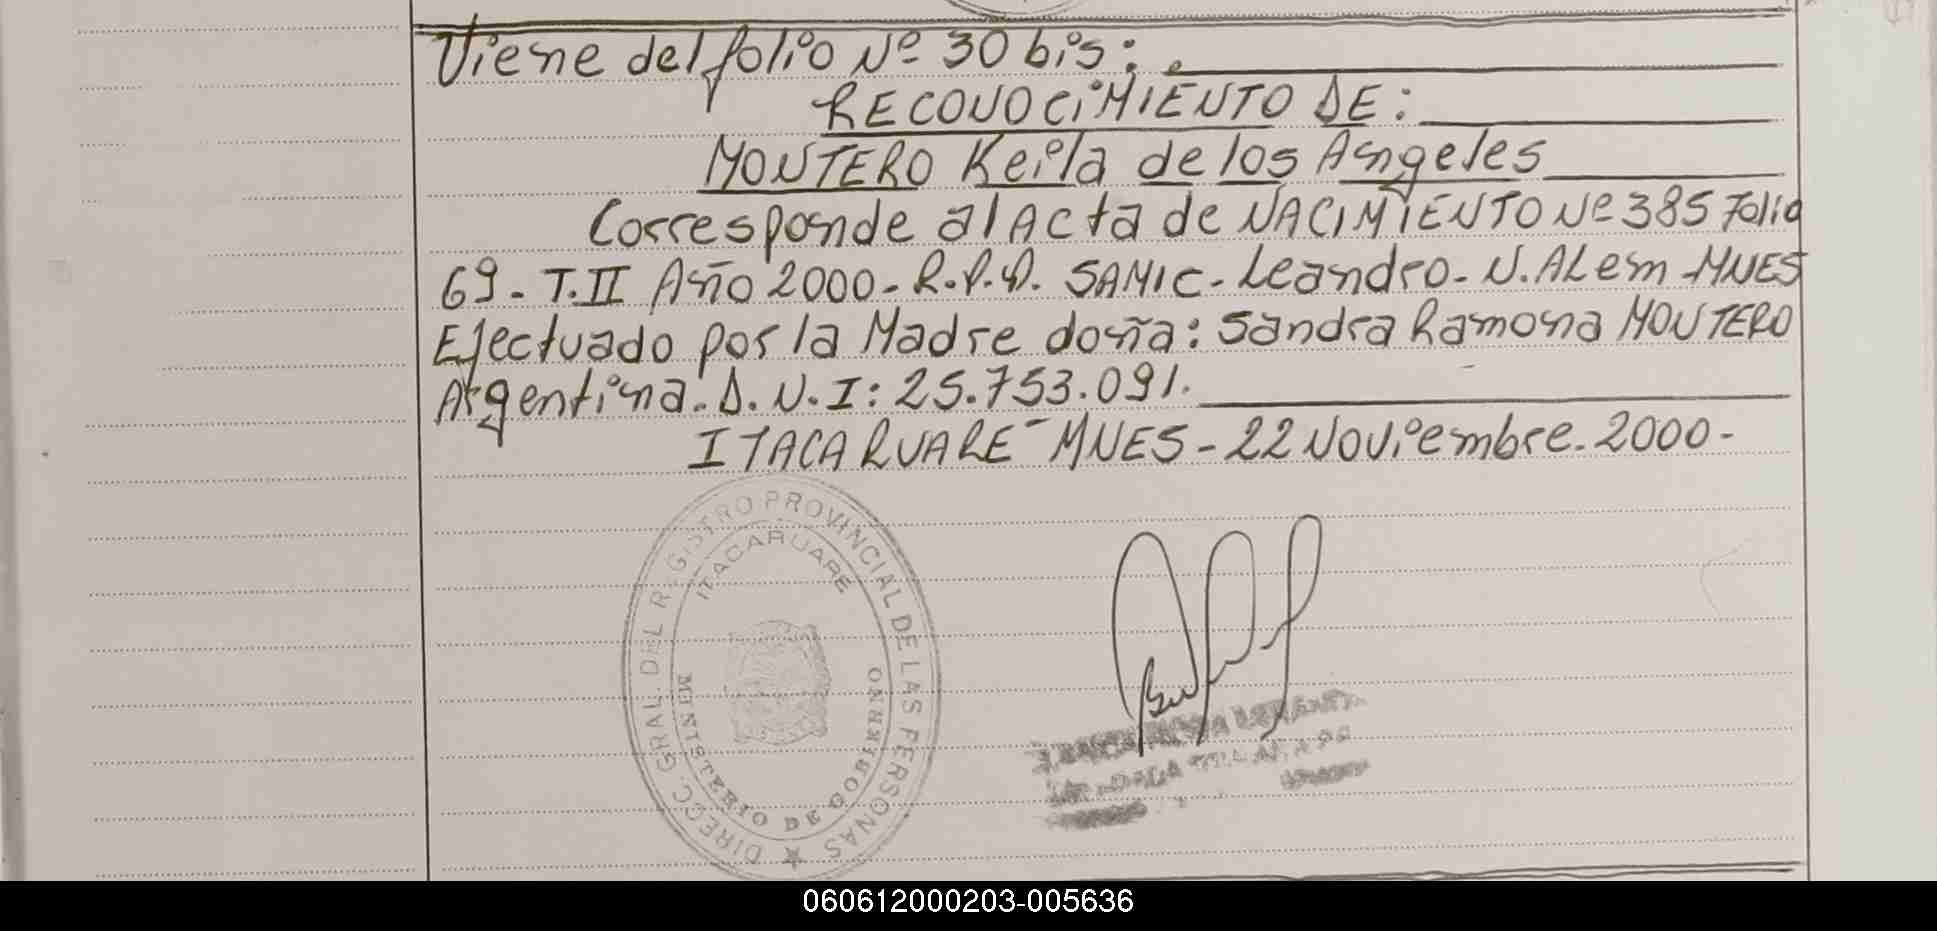 Viene del folio Nº 30 bis:
RECONOCIMIENTO DE:
MONTERO Keila de los Angeles
Corresponde al Acta de NACIMIENTO Nº 385 Folio
69 - T. II Año 2000 - R.P.P. SAMIC - Leandro - N. ALem - MNES
Efectuado por la Madre doña: Sandra Ramona MONTERO
Argentina. D.N.I: 25.753.091.
ITACARUARE - MNES - 22 Noviembre - 2000 -
DIRECC. GRAL. DEL REGISTRO PROVINCIAL DE LAS PERSONAS
ITACARUARE
MINISTERIO DE GOBIERNO
060612000203-005636